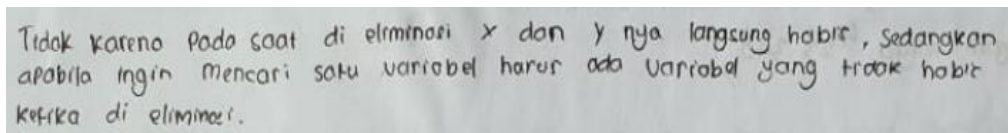 Tidak karena pada saat di eliminasi x dan y nya langsung habis, sedangkan
apabila ingin mencari satu variabel harus ada variabel yang tidak habis
ketika di eliminasi.